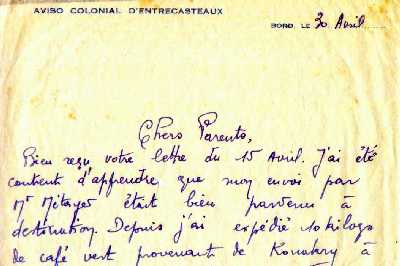 AVISO COLONIAL D'ENTRECASTEAUX
BORD, LE 30 Avril
Chers Parents,
Bien reçu votre lettre du 15 Avril. J'ai été
content d'apprendre que mon envoi par
Mr Métayer était bien parvenu à
destination. Depuis j'ai expédié 10 kilogs
de café vert provenant de Konakry à